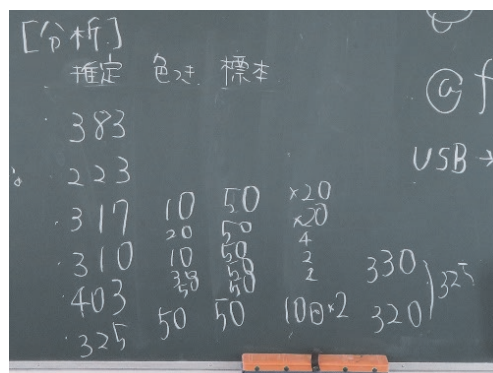 [分析]
推定 色つき 標本
383
223
317 10 50 ×20
20 50 ×20
310 10 50 4
30 50 2
403 50 50 2
325 50 50 10回×2
330
320
325
@f
USB→